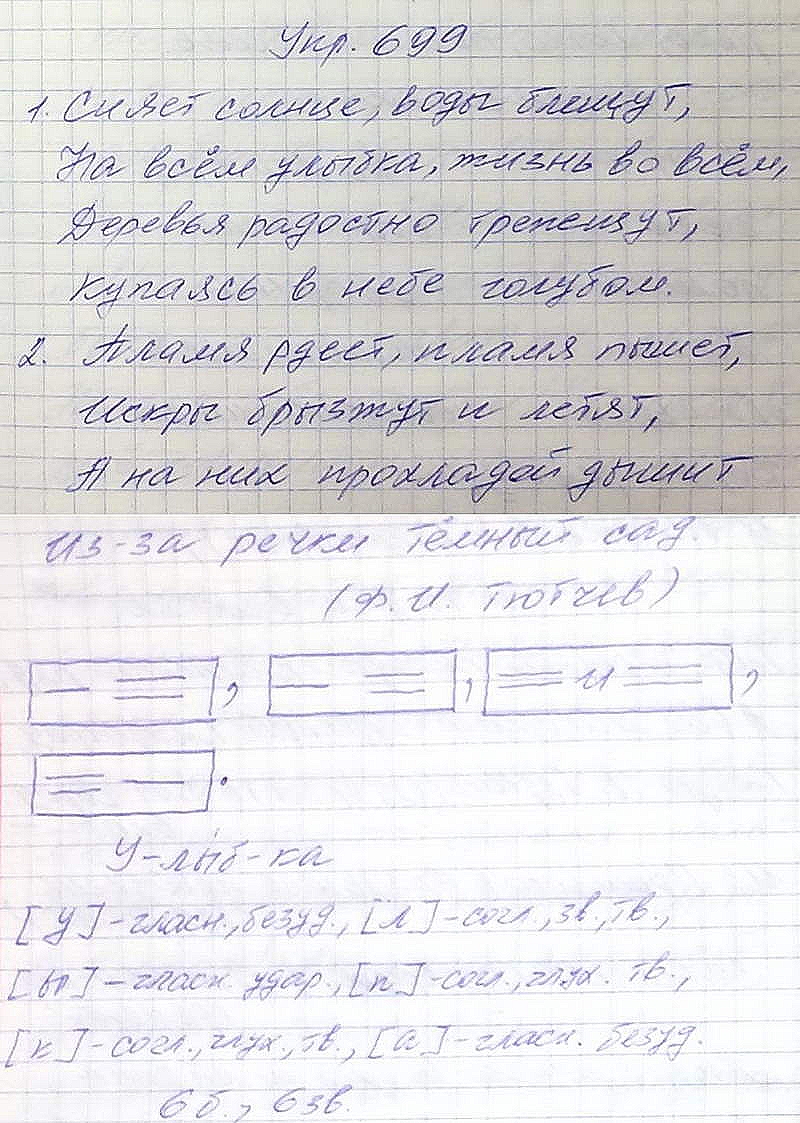 Укр. 699
1. Сияет солнце, воды блещут,
На всём улыбка, жизнь во всём,
Деревья радостно трепещут,
Купаясь в небе голубом.
2. Пламя рдеет, пламя пышет,
Искры брызжут и летят,
А на них прохладой дышит
Из-за речки тёмный сад.
(Ф.И. Тютчев)
, , и ,
.
У-лы́б-ка
[у]-гласн., безуд., [л]-согл., зв., тв.,
[ы]-гласн. удар., [п]-согл., глух. тв.,
[к]-согл., глух., тв., [а]-гласн. безуд.
6б., 6зв.